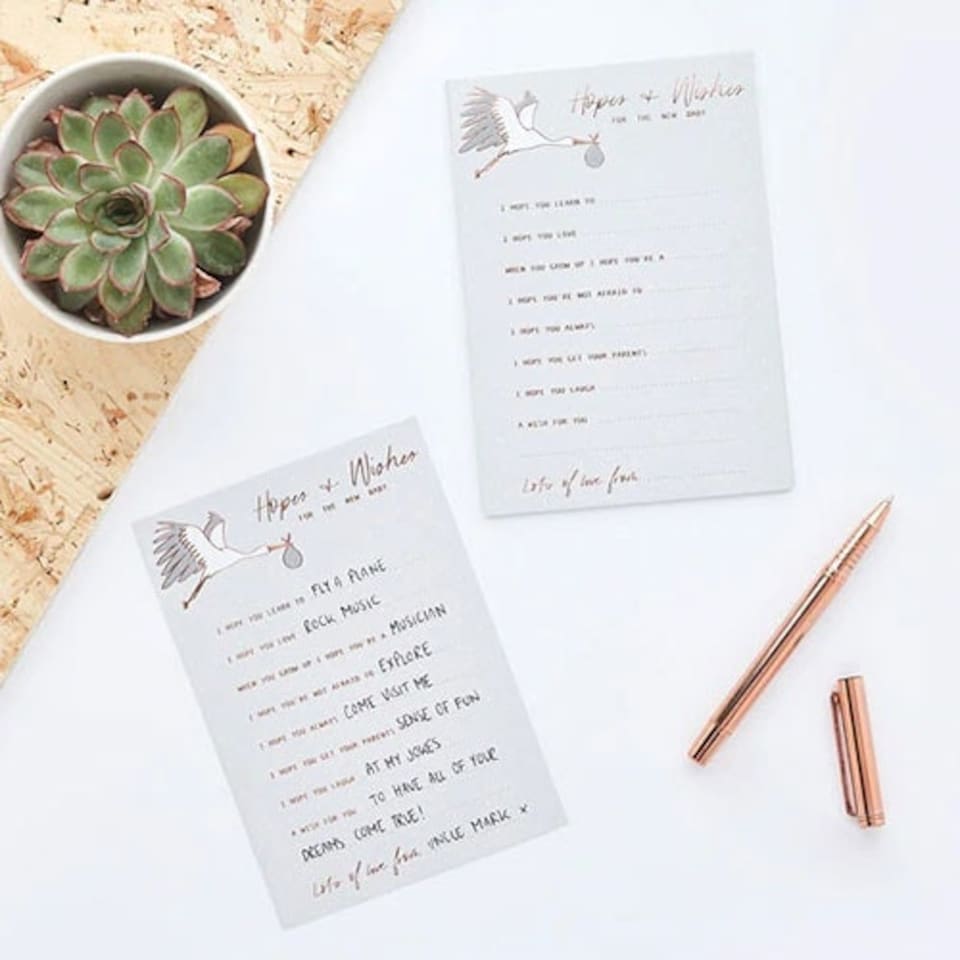 Hopes + Wishes
FOR THE NEW BABY
I HOPE YOU LEARN TO
I HOPE YOU LOVE
WHEN YOU GROW UP I HOPE YOU'RE A
I HOPE YOU'RE NOT AFRAID TO
I HOPE YOU ALWAYS
I HOPE YOU GET YOUR PARENTS
I HOPE YOU LAUGH
A WISH FOR YOU
Lots of love from
Hopes + Wishes
FOR THE NEW BABY
I HOPE YOU LEARN TO FLY A PLANE
I HOPE YOU LOVE ROCK MUSIC
WHEN YOU GROW UP I HOPE YOU'RE A MUSICIAN
I HOPE YOU'RE NOT AFRAID TO EXPLORE
I HOPE YOU ALWAYS COME VISIT ME
I HOPE YOU GET YOUR PARENTS SENSE OF FUN
I HOPE YOU LAUGH AT MY JOKES
A WISH FOR YOU TO HAVE ALL OF YOUR
DREAMS COME TRUE!
Lots of love from UNCLE MARK x